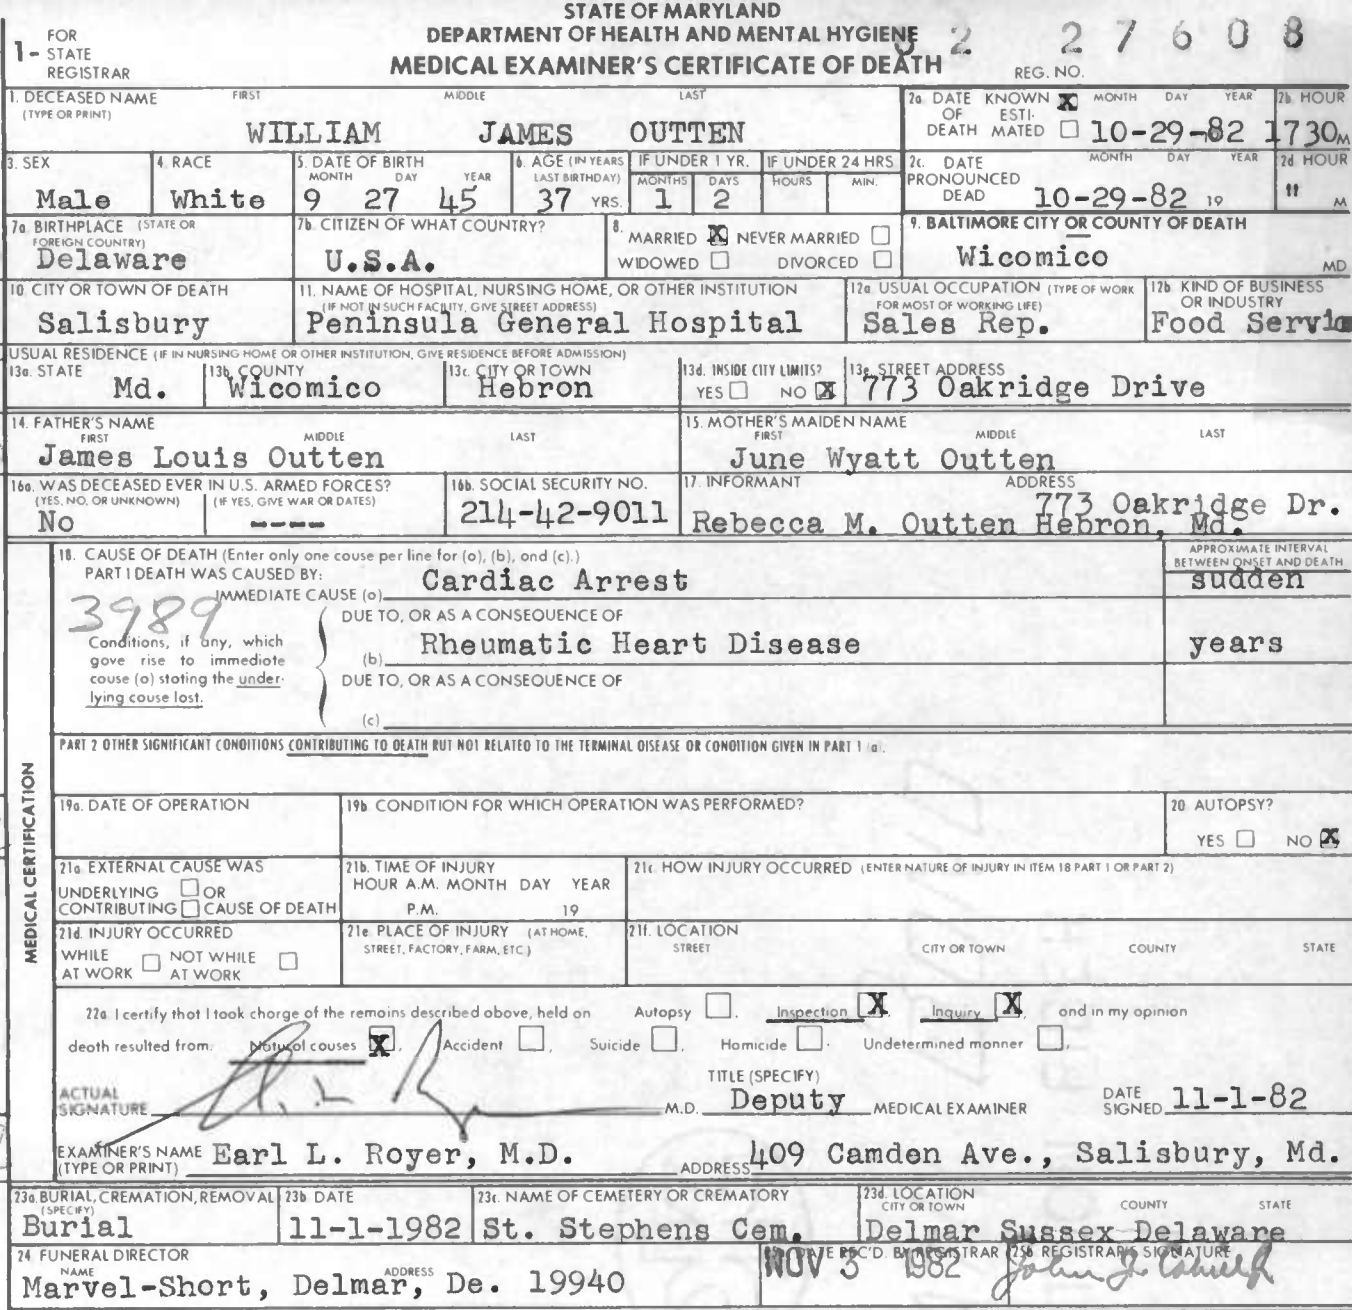 STATE OF MARYLAND
DEPARTMENT OF HEALTH AND MENTAL HYGIENE
MEDICAL EXAMINER'S CERTIFICATE OF DEATH
1- FOR STATE REGISTRAR
REG. NO. 82 27608
1. DECEASED NAME (TYPE OR PRINT) FIRST MIDDLE LAST
WILLIAM JAMES OUTTEN
2a DATE OF DEATH KNOWN X ESTIMATED MONTH DAY YEAR 10-29-82
2b. HOUR 1730 M
3. SEX Male
4. RACE White
5. DATE OF BIRTH MONTH DAY YEAR 9 27 45
6. AGE (IN YEARS LAST BIRTHDAY) 37 YRS.
IF UNDER 1 YR. MONTHS 1 DAYS 2
IF UNDER 24 HRS HOURS MIN.
2c. DATE PRONOUNCED DEAD MONTH DAY YEAR 10-29-82 19
2d. HOUR " M
7a. BIRTHPLACE (STATE OR FOREIGN COUNTRY) Delaware
7b. CITIZEN OF WHAT COUNTRY? U.S.A.
8. MARRIED X NEVER MARRIED
WIDOWED DIVORCED
9. BALTIMORE CITY OR COUNTY OF DEATH
Wicomico MD
10. CITY OR TOWN OF DEATH Salisbury
11. NAME OF HOSPITAL, NURSING HOME, OR OTHER INSTITUTION
(IF NOT IN SUCH FACILITY, GIVE STREET ADDRESS)
Peninsula General Hospital
12a. USUAL OCCUPATION (TYPE OF WORK FOR MOST OF WORKING LIFE)
Sales Rep.
12b. KIND OF BUSINESS OR INDUSTRY
Food Servic
USUAL RESIDENCE (IF IN NURSING HOME OR OTHER INSTITUTION, GIVE RESIDENCE BEFORE ADMISSION)
13a. STATE Md.
13b. COUNTY Wicomico
13c. CITY OR TOWN Hebron
13d. INSIDE CITY LIMITS? YES NO X
13e. STREET ADDRESS 773 Oakridge Drive
14. FATHER'S NAME FIRST MIDDLE LAST
James Louis Outten
15. MOTHER'S MAIDEN NAME FIRST MIDDLE LAST
June Wyatt Outten
16a. WAS DECEASED EVER IN U.S. ARMED FORCES?
(YES, NO, OR UNKNOWN) (IF YES, GIVE WAR OR DATES)
No ----
16b. SOCIAL SECURITY NO.
214-42-9011
17. INFORMANT ADDRESS
773 Oakridge Dr.
Rebecca M. Outten Hebron, Md.
MEDICAL CERTIFICATION
18. CAUSE OF DEATH (Enter only one cause per line for (a), (b), and (c).)
PART I DEATH WAS CAUSED BY:
IMMEDIATE CAUSE (a) Cardiac Arrest
APPROXIMATE INTERVAL BETWEEN ONSET AND DEATH
sudden
3989
Conditions, if any, which gave rise to immediate cause (a) stating the underlying cause last.
DUE TO, OR AS A CONSEQUENCE OF
(b) Rheumatic Heart Disease years
DUE TO, OR AS A CONSEQUENCE OF
(c)
PART 2 OTHER SIGNIFICANT CONDITIONS CONTRIBUTING TO DEATH BUT NOT RELATED TO THE TERMINAL DISEASE OR CONDITION GIVEN IN PART 1 (a).
19a. DATE OF OPERATION
19b CONDITION FOR WHICH OPERATION WAS PERFORMED?
20 AUTOPSY?
YES NO X
21a EXTERNAL CAUSE WAS
UNDERLYING OR
CONTRIBUTING CAUSE OF DEATH
21b. TIME OF INJURY
HOUR A.M. MONTH DAY YEAR
P.M. 19
21c HOW INJURY OCCURRED (ENTER NATURE OF INJURY IN ITEM 18 PART 1 OR PART 2)
21d. INJURY OCCURRED
WHILE AT WORK NOT WHILE AT WORK
21e PLACE OF INJURY (AT HOME, STREET, FACTORY, FARM, ETC.)
21f. LOCATION
STREET CITY OR TOWN COUNTY STATE
22a I certify that I took charge of the remains described above, held on Autopsy , Inspection X, Inquiry X, and in my opinion
death resulted from: Natural causes X, Accident , Suicide , Homicide . Undetermined manner ,
ACTUAL SIGNATURE M.D.
TITLE (SPECIFY) Deputy MEDICAL EXAMINER
DATE SIGNED 11-1-82
EXAMINER'S NAME (TYPE OR PRINT) Earl L. Royer, M.D.
ADDRESS 409 Camden Ave., Salisbury, Md.
23a. BURIAL, CREMATION, REMOVAL (SPECIFY) Burial
23b DATE 11-1-1982
23c. NAME OF CEMETERY OR CREMATORY St. Stephens Cem.
23d. LOCATION CITY OR TOWN COUNTY STATE
Delmar Sussex Delaware
24 FUNERAL DIRECTOR
NAME ADDRESS
Marvel-Short, Delmar, De. 19940
DATE REC'D. BY REGISTRAR NOV 3 1982
25b REGISTRAR'S SIGNATURE